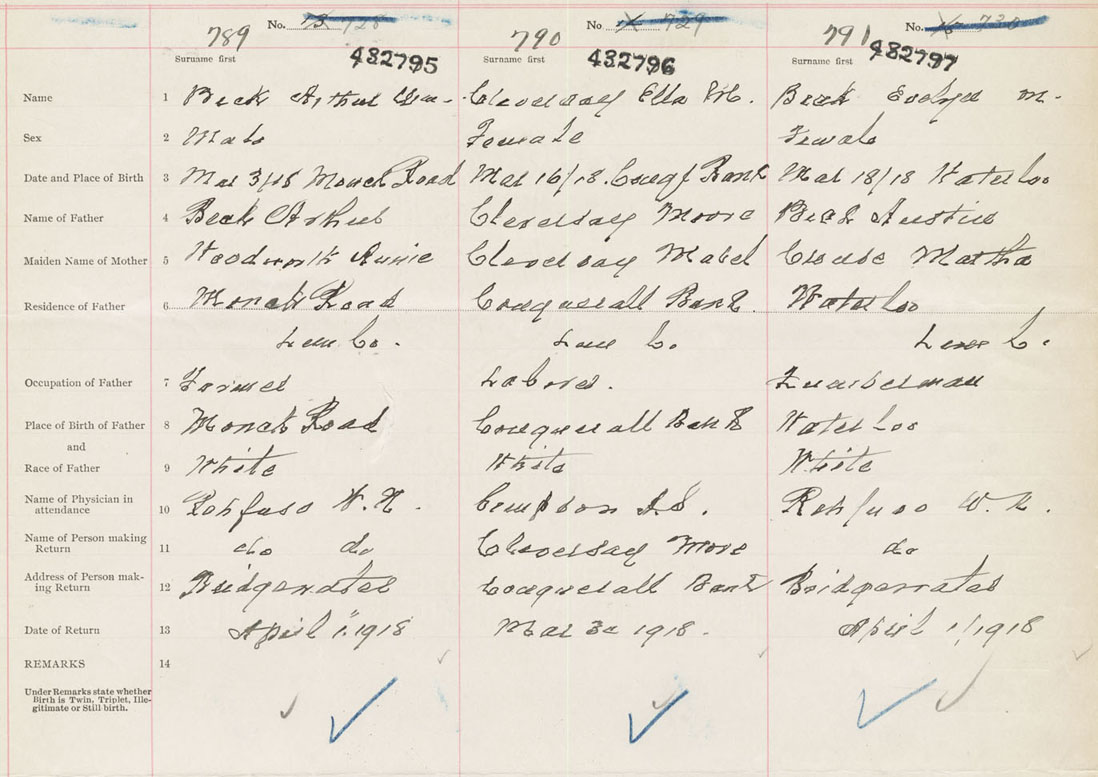 No. 13 728 No 14 729 No. 15 730
789 790 791
Surname first 432795 Surname first 432796 Surname first 432797
Name 1 Beck Arthur Cleversey Ella M. Beck Evelyn M.
Sex 2 Male Female Female
Date and Place of Birth 3 Mar 3/18 Monck Road Mar 16/18. Conq Bank Mar 18/18 Waterloo
Name of Father 4 Beck Arthur Cleversey Moore Beck Austin
Maiden Name of Mother 5 Woodworth Annie Cleversey Mabel Crouse Martha
Residence of Father 6 Monck Road Conquerall Bank. Waterloo
Lun Co. Lun Co Lun C.
Occupation of Father 7 Farmer Laborer. Lumberman
Place of Birth of Father 8 Monck Road Conquerall Bank Waterloo
and
Race of Father 9 White White White
Name of Physician in
attendance 10 Rehfuss W. N. Simpson Rehfuss W. N.
Name of Person making
Return 11 do do Cleversey More do
Address of Person mak-
ing Return 12 Bridgewater Conquerall Bank Bridgewater
Date of Return 13 April 1. 1918 Mar 30 1918. April 1/1918
REMARKS 14
Under Remarks state whether
Birth is Twin, Triplet, Ille-
gitimate or Still birth.